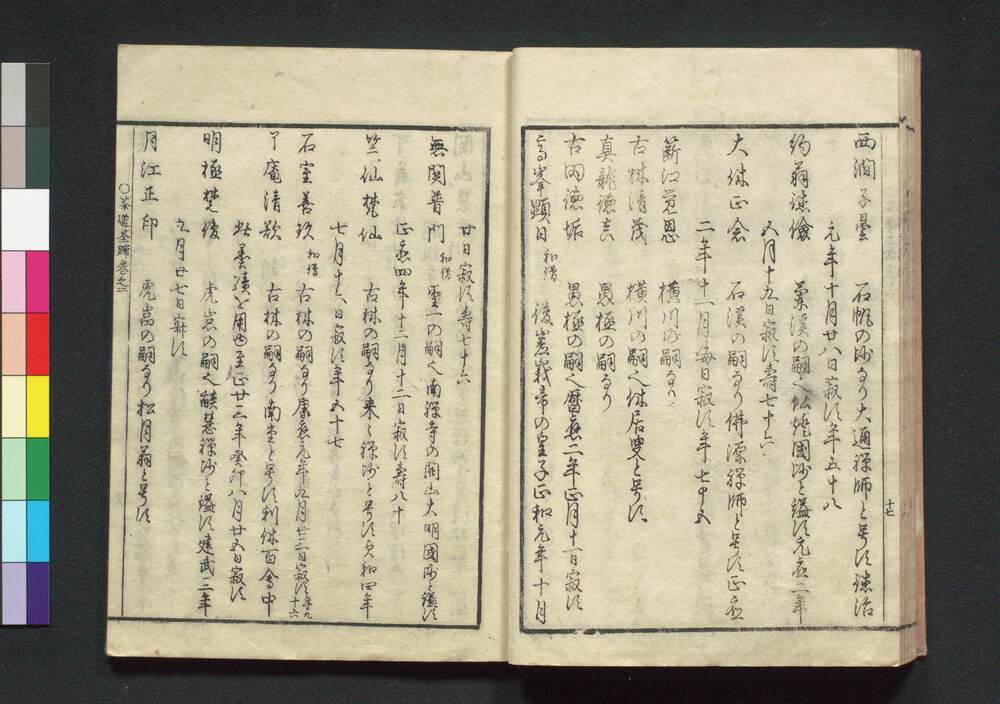 西澗子曇 石帆の嗣なり大通禅師と号す徳治
元年十月廿八日寂す年五十八
約翁徳儉 蘭溪の嗣也仏燈國师と謚す元應二年
五月十九日寂す壽七十六
大休正念 石溪の嗣なり佛源禅師と号す正應
二年十一月晦日寂す年七十五
蘄江覚恩 横川の嗣なり
古林清茂 横川の嗣也休居叟と号す
真龍徳 愚極の嗣なり
古両徳垢 愚極の嗣也暦應二年正月十一日寂す
高峯顕日 和僧 後嵯峨帝の皇子正和元年十月
廿日寂す壽七十六
無関普門 和僧 聖一の嗣也南禅寺の開山大明國师と謚す
正應四年十二月十二日寂す壽八十
竺仙梵仙 古林の嗣なり来〻禅师と号す貞和四年
七月十六日寂す年五十七
石室善玖 和僧 古林の嗣なり康應元年九月廿五日寂す年九十六
了庵清欲 古林の嗣なり南堂と号す利休百會中
此墨蹟を用由至正廿三年癸卯八月廿五日寂す
明極楚俊 虎岩の嗣也燄慧禅师と謚す建武三年
九月廿七日寂す
月江正印 虎岩の嗣なり松月翁と号す
〇茶道筌蹄巻之二
十七